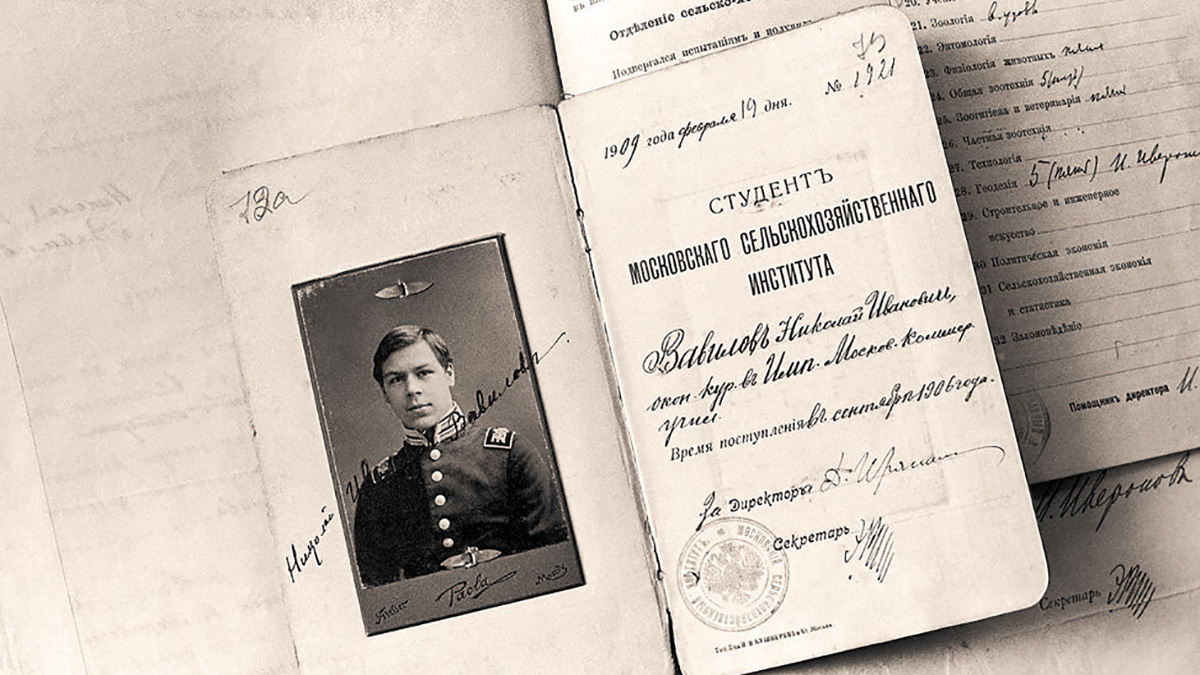 12а
Николай Ив Вавиловъ.
Atelier Paola Москва
79
№ 1921
1909 года февраля 19 дня.
СТУДЕНТЪ
МОСКОВСКАГО СЕЛЬСКОХОЗЯЙСТВЕННАГО
ИНСТИТУТА
Вавиловъ Николай Ивановичъ,
окон. кур. въ Имп. Москов. Коммер.
учил.
Время поступленія въ сентябрѣ 1906 года.
За Директоръ
Секретарь
Отдѣленіе сельско-хо
Подвергался испытаніямъ и получилъ
20.
21. Зоологія
22. Энтомологія
23. Физіологія животныхъ пять
24. Общая зоотехнія 5 (пять)
25. Зоогигіена и ветеринарія пять
26. Частная зоотехнія
27. Технологія
28. Геодезія 5 (пять) И. Иверонов
29. Строительное и инженерное
искусство
30 Политическая экономія
31 Сельскохозяйственная экономія
и статистика
32 Законовѣдѣніе
Помощникъ директора И.
И. Ивероновъ
Секретарь